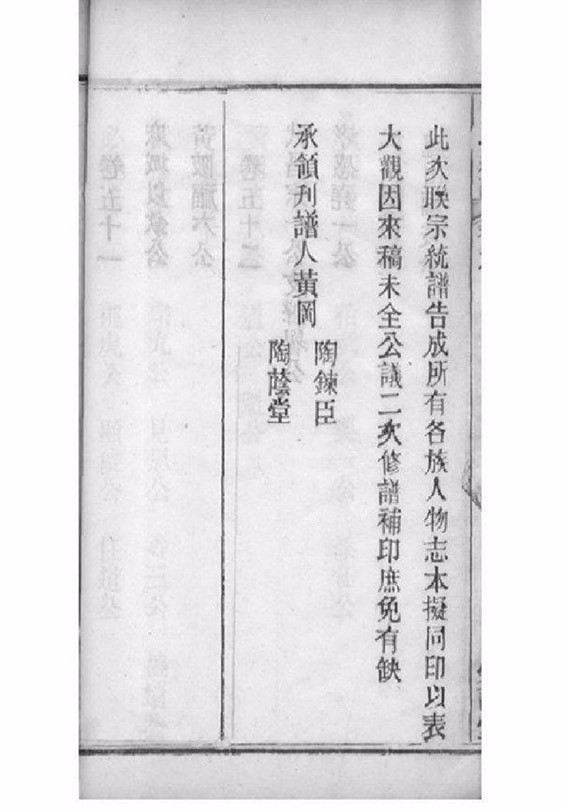 此次聨宗統譜告成所有各族人物志本擬同印以表
大觀因來稿未全公議二次修譜補印庶免有缺
承領刋譜人黃岡
陶鍊臣
陶蔭堂